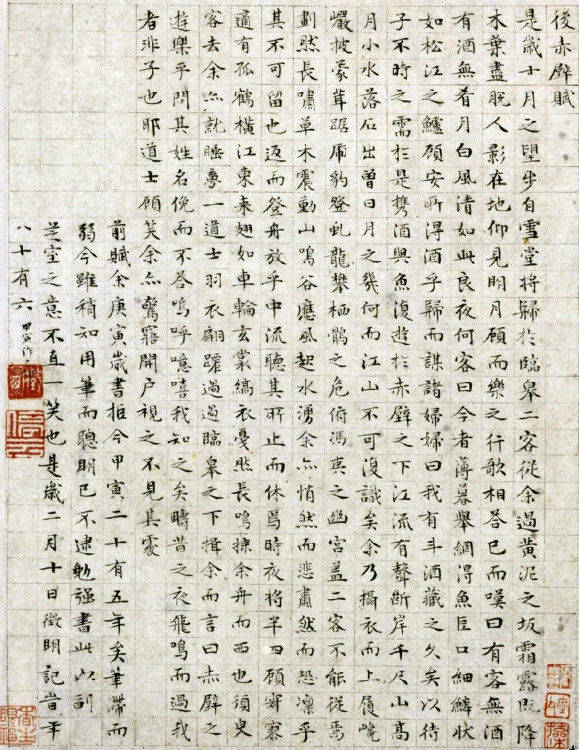 後赤壁賦
是歲十月之望步自雪堂將歸於臨皋二客從余過黃泥之坂霜露既降
木葉盡脫人影在地仰見明月顧而樂之行歌相答已而嘆曰有客無酒
有酒無肴月白風清如此良夜何客曰今者薄暮舉網得魚巨口細鱗狀
如松江之鱸顧安所得酒乎歸而謀諸婦婦曰我有斗酒藏之久矣以待
子不時之需於是攜酒與魚復遊於赤壁之下江流有聲斷岸千尺山高
月小水落石出曾日月之幾何而江山不可復識矣余乃攝衣而上履巉
巖披蒙茸踞虎豹登虬龍攀栖鶻之危俯馮夷之幽宮蓋二客不能從焉
劃然長嘯草木震動山鳴谷應風起水湧余亦悄然而悲肅然而恐凜乎
其不可留也返而登舟放乎中流聽其所止而休焉時夜將半四顧寂寥
適有孤鶴橫江東來翅如車輪玄裳縞衣戛然長鳴掠余舟而西也須臾
客去余亦就睡夢一道士羽衣翩躚過過臨皋之下揖余而言曰赤壁之
遊樂乎問其姓名俛而不答嗚呼噫嘻我知之矣疇昔之夜飛鳴而過我
者非子也耶道士顧笑余亦驚寤開戶視之不見其處
前賦余庚寅歲書拒今甲寅二十有五年矣筆滯而
弱今雖稍知用筆而聰明已不逮勉強書此以副
芝室之意不直一笑也是歲二月十日徵明記時年
八十有六